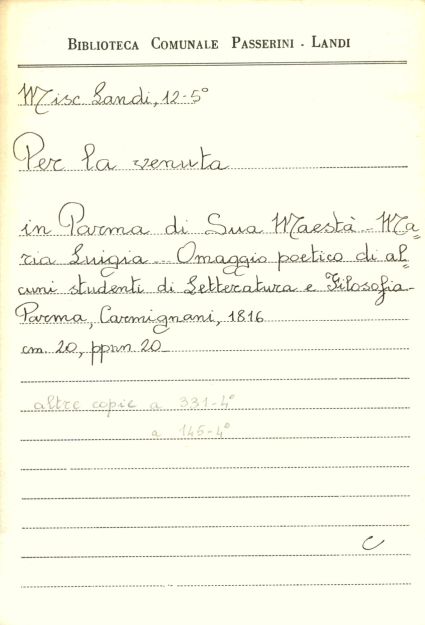 BIBLIOTECA COMUNALE PASSERINI - LANDI
Misc. Landi, 12-5°
Per la venuta
in Parma di Sua Maestà - Ma=
ria Luigia - Omaggio poetico di al=
cuni studenti di Letteratura e Filosofia -
Parma, Carmignani, 1816
cm 20, ppnn 20
altre copie a 331-4°
a 145-4°
C